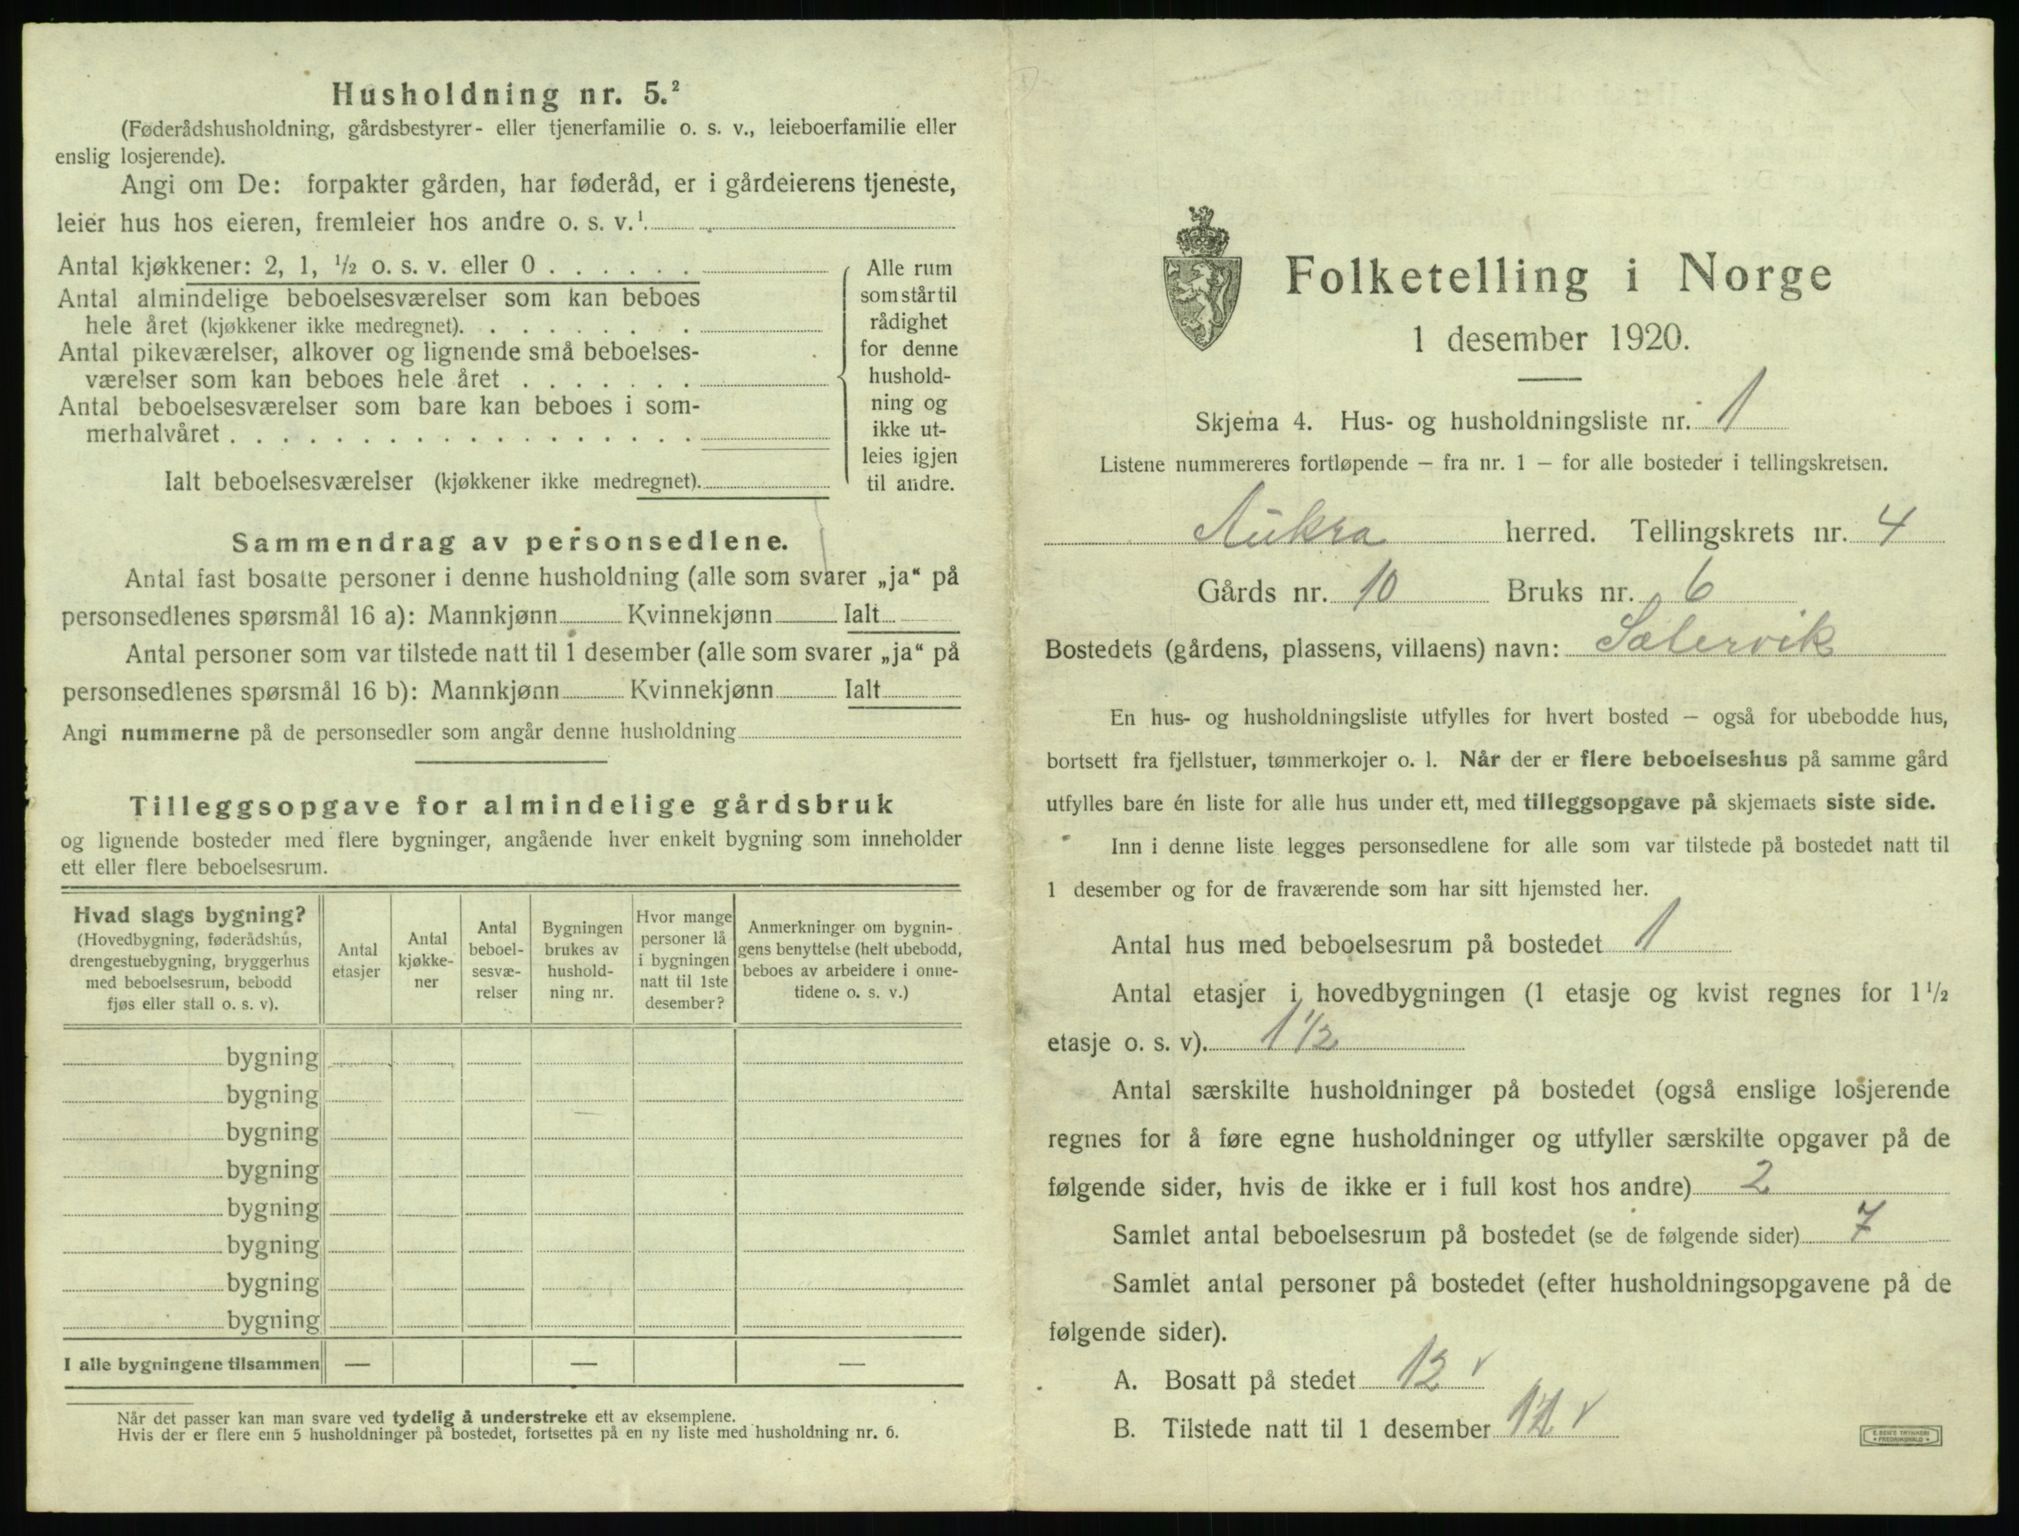 Husholdning nr. 5.²
(Føderådshusholdning, gårdsbestyrer- eller tjenerfamilie o. s. v., leieboerfamilie eller
enslig losjerende).
Angi om De: forpakter gården, har føderåd, er i gårdeierens tjeneste,
leier hus hos eieren, fremleier hos andre o. s. v.¹
Antal kjøkkener: 2, 1, ½ o. s. v. eller 0 . . . . . .
Antal almindelige beboelsesværelser som kan beboes
hele året (kjøkkener ikke medregnet). . . . . . . . .
Antal pikeværelser, alkover og lignende små beboelses-
værelser som kan beboes hele året . . . . . . .
Antal beboelsesværelser som bare kan beboes i som-
merhalvåret . . . . . . . . . . . . . . . . . .
Ialt beboelsesværelser (kjøkkener ikke medregnet).
Alle rum
som står til
rådighet
for denne
hushold-
ning og
ikke ut-
leies igjen
til andre.
Sammendrag av personsedlene.
Antal fast bosatte personer i denne husholdning (alle som svarer „ja“ på
personsedlenes spørsmål 16 a): Mannkjønn Kvinnekjønn Ialt
Antal personer som var tilstede natt til 1 desember (alle som svarer „ja“ på
personsedlenes spørsmål 16 b): Mannkjønn Kvinnekjønn Ialt
Angi nummerne på de personsedler som angår denne husholdning
Tilleggsopgave for almindelige gårdsbruk
og lignende bosteder med flere bygninger, angående hver enkelt bygning som inneholder
ett eller flere beboelsesrum.
Hvad slags bygning?
(Hovedbygning, føderådshus,
drengestuebygning, bryggerhus
med beboelsesrum, bebodd
fjøs eller stall o. s. v).
Antal
etasjer
Antal
kjøkke-
ner
Antal
beboel-
sesvæ-
relser
Bygningen
brukes av
hushold-
ning nr.
Hvor mange
personer lå
i bygningen
natt til 1ste
desember?
Anmerkninger om bygnin-
gens benyttelse (helt ubebodd,
beboes av arbeidere i onne-
tidene o. s. v.)
bygning
bygning
bygning
bygning
bygning
bygning
bygning
bygning
I alle bygningene tilsammen — — —
Når det passer kan man svare ved tydelig å understreke ett av eksemplene.
Hvis der er flere enn 5 husholdninger på bostedet, fortsettes på en ny liste med husholdning nr. 6.
Folketelling i Norge
1 desember 1920.
Skjema 4. Hus- og husholdningsliste nr. 1
Listene nummereres fortløpende – fra nr. 1 – for alle bosteder i tellingskretsen.
Aukra herred. Tellingskrets nr. 4
Gårds nr. 10 Bruks nr. 6
Bostedets (gårdens, plassens, villaens) navn: Sætervik
En hus- og husholdningsliste utfylles for hvert bosted – også for ubebodde hus,
bortsett fra fjellstuer, tømmerkojer o. l. Når der er flere beboelseshus på samme gård
utfylles bare én liste for alle hus under ett, med tilleggsopgave på skjemaets siste side.
Inn i denne liste legges personsedlene for alle som var tilstede på bostedet natt til
1 desember og for de fraværende som har sitt hjemsted her.
Antal hus med beboelsesrum på bostedet 1
Antal etasjer i hovedbygningen (1 etasje og kvist regnes for 1½
etasje o. s. v). 1½
Antal særskilte husholdninger på bostedet (også enslige losjerende
regnes for å føre egne husholdninger og utfyller særskilte opgaver på de
følgende sider, hvis de ikke er i full kost hos andre) 2
Samlet antal beboelsesrum på bostedet (se de følgende sider) 7
Samlet antal personer på bostedet (efter husholdningsopgavene på de
følgende sider).
A. Bosatt på stedet 12 v
B. Tilstede natt til 1 desember v